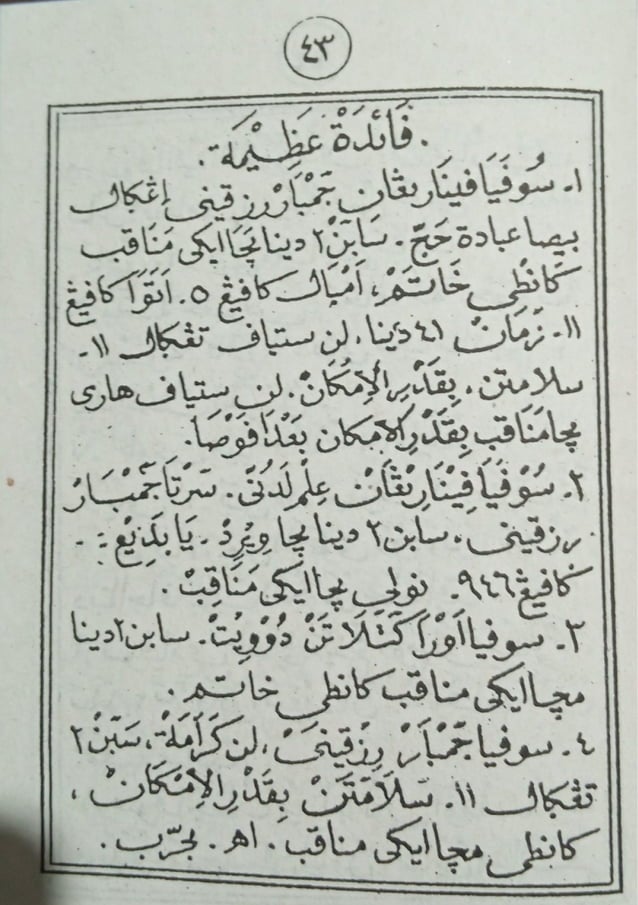 ٤٣
. فَائِدَةْ عَظِيْمَة .
١. سُوفَيَا فينَاريڠان جَمْبَارْ رزقينى إڠكال
بيصا عبادة حَجّ . سَابَنْ٢ دينا بَچَا ايكى مَنَاقب
كانطى خَاتَمْ، أَمْبَالْ كافيڠ ٥. اَتَوَا كافيڠ
١١- زَمَانْ ٤١ دَينا، لن ستياف تڠكال ١١-
سلامتن، بِقَدْرِ الْاِمْكَانْ. لن ستياف هارى
مچا مَنَاقب بِقَدْرِ الْاِمكان بَعْدَا فَوْصَا.
٢. سُوْفَيَا فِيْنَارِيْڠَانْ عِلْم لَدُنّى. سَرْتَا جَمْبَارْ
رزقينى، سابن٢ دينا مچا وِيْرِدْ. يَا بَدِيْعُ:-
كافيڠ ٩٤٦. نولى مچا ايكى مَنَاقِبْ.
٣. سوفيا اَوْرَا كَتَلَاتَنْ دُوْوِيْتْ. سابن٢ دينا
مچا ايكى مناقب كانطى خاتم.
٤. سوفيا جَمْبَارْ رِزْقِينَىْ، لن كَرَامَةْ، سَبَنْ٢
تڠكال ١١. سَلَامَتَنْ بِقَدْرِ الْاِمْكَانْ،
كانطى مچا ايكى مناقب. اهـ. مجرّب.